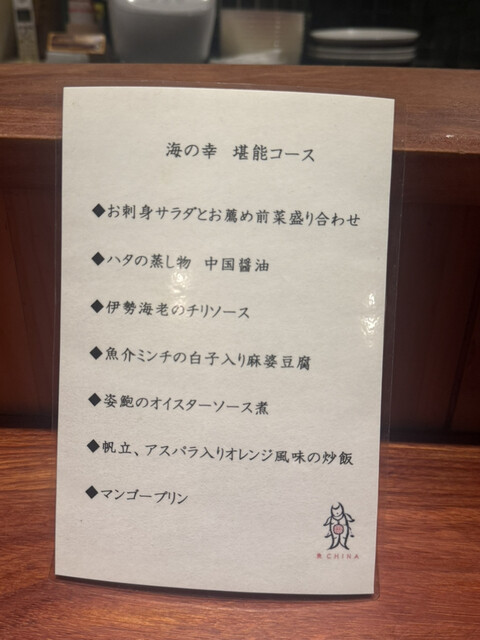 海の幸　堪能コース
◆お刺身サラダとお薦め前菜盛り合わせ
◆ハタの蒸し物　中国醤油
◆伊勢海老のチリソース
◆魚介ミンチの白子入り麻婆豆腐
◆姿鮑のオイスターソース煮
◆帆立、アスパラ入りオレンジ風味の炒飯
◆マンゴープリン
魚CHINA